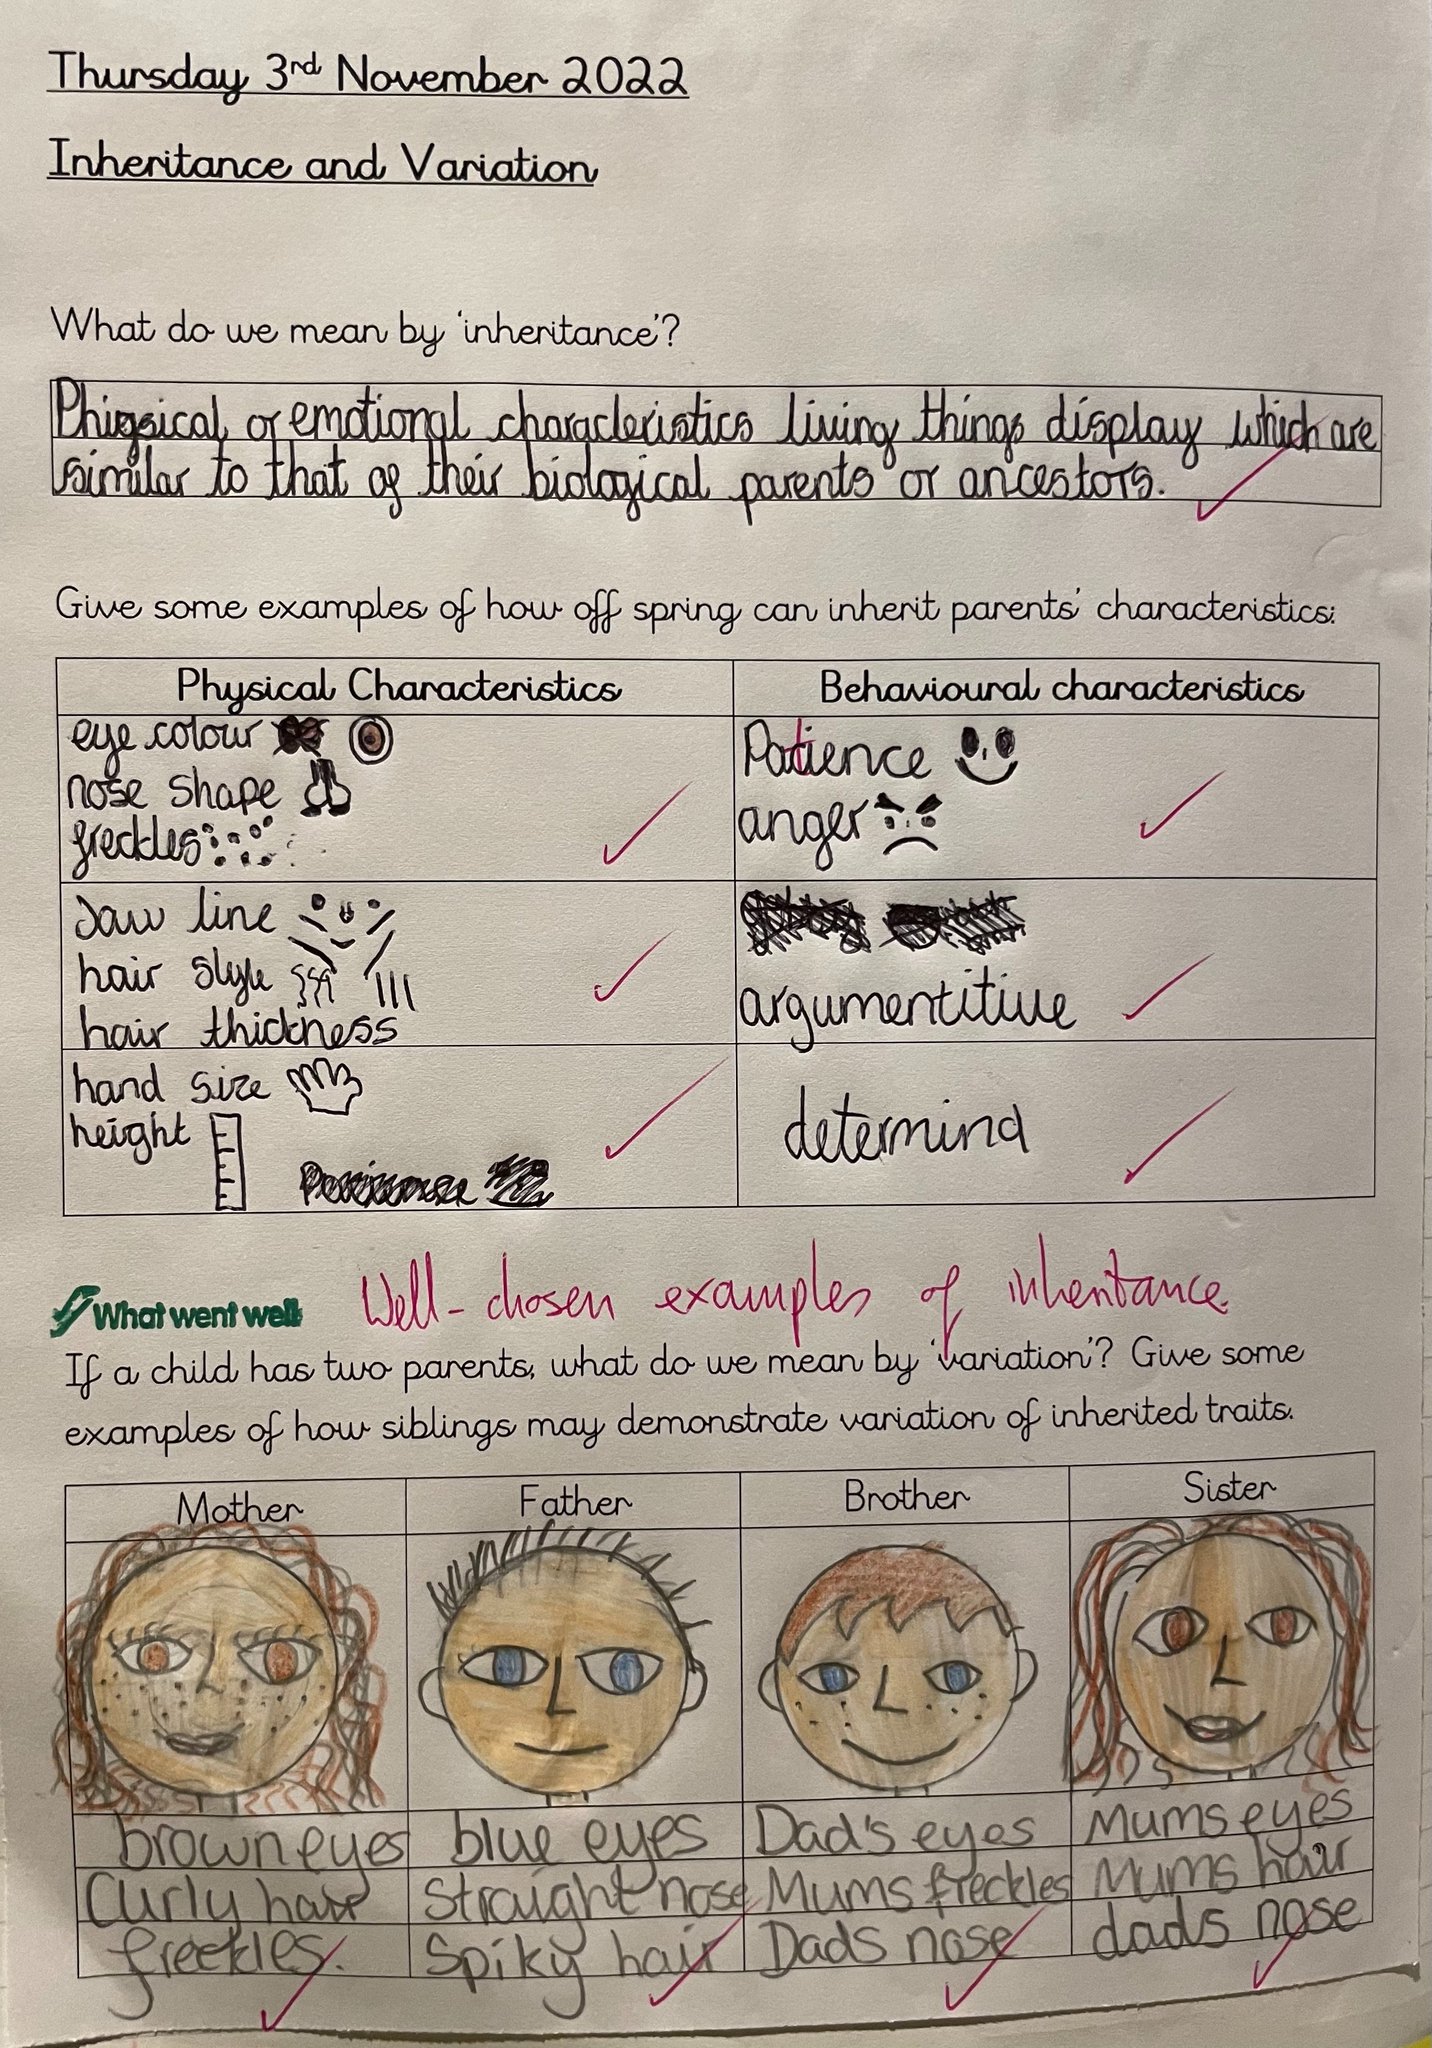 Thursday 3rd November 2022
Inheritance and Variation
What do we mean by 'inheritance'?
Phigsical or emotional characteristics living things display which are
similar to that of their biological parents or ancestors.
Give some examples of how off spring can inherit parents' characteristics:
Physical Characteristics
Behavioural characteristics
eye colour
nose shape
freckles
Patience
anger
Jaw line
hair style
hair thickness
argumentitive
hand size
height
determind
What went well
Well-chosen examples of inheritance
If a child has two parents, what do we mean by 'variation'? Give some
examples of how siblings may demonstrate variation of inherited traits.
Mother
Father
Brother
Sister
brown eyes
Curly hair
freckles.
blue eyes
Straight nose
Spiky hair
Dad's eyes
Mums freckles
Dads nose
Mums eyes
Mums hair
dads nose